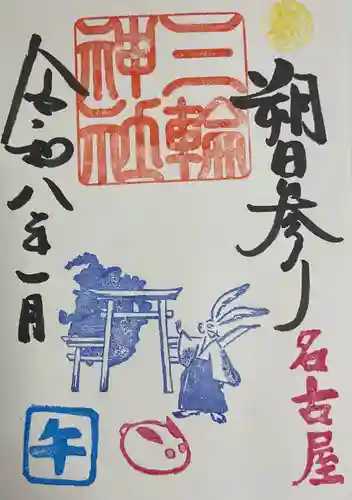 朔日参り
名古屋
三輪神社
令和八年一月
午